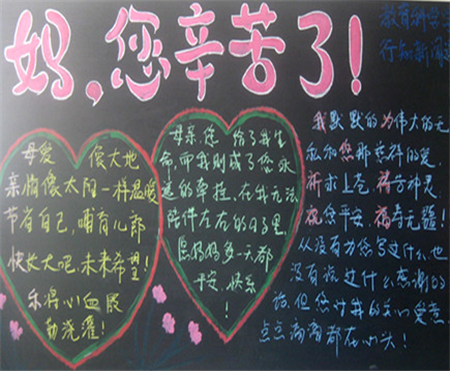 妈,您辛苦了!
教育科学
行知新闻
母爱 像大地
亲情像太阳一样温暖
节省自己,哺育儿郎
快长大吧,未来希望!
乐将心血展
勤浇灌!
母亲,您 给了我生
命而我则成了您永
远的牵挂,在我无法
陪伴左右的日子里,
愿妈妈每一天都
平安、快乐
!
我默默的为伟大的无
私的您那慈祥的爱,
祈求上苍,祷告神灵
祝您平安,福寿无疆!
从没有为您写过什么,也
没有说过什么感谢的
话,但您对我的关心爱意
点点滴滴都在心头!